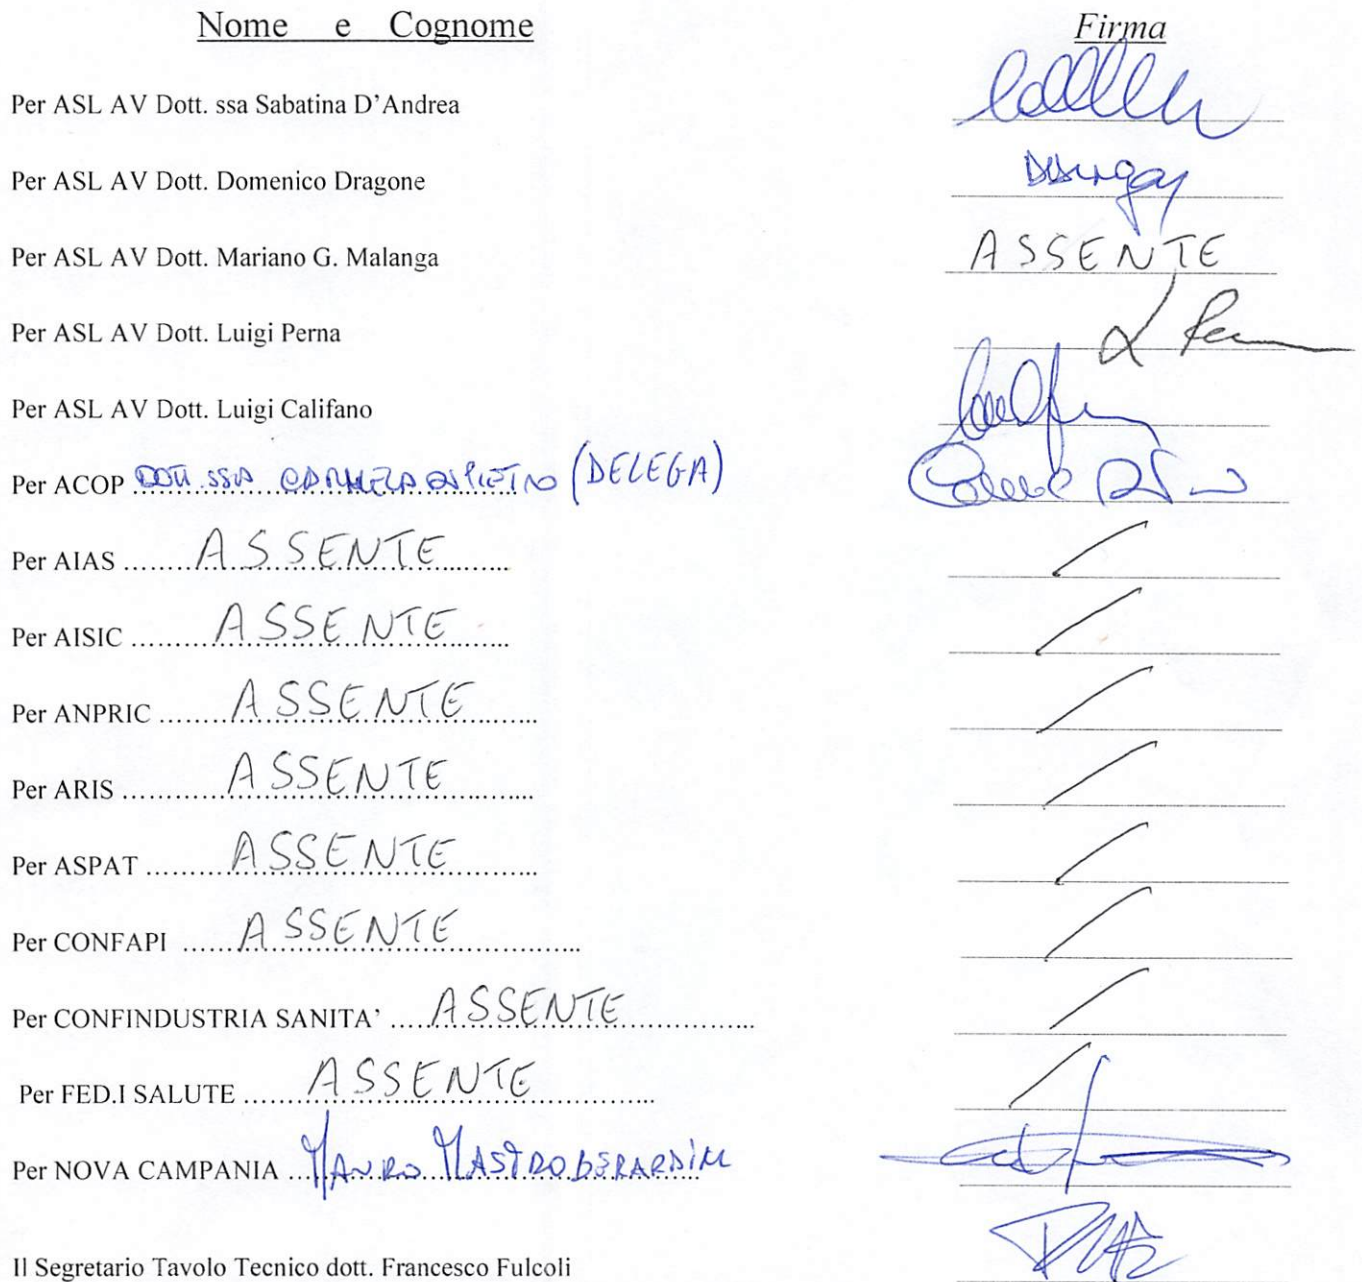 Nome e Cognome Firma
Per ASL AV Dott. ssa Sabatina D'Andrea
Per ASL AV Dott. Domenico Dragone
Per ASL AV Dott. Mariano G. Malanga ASSENTE
Per ASL AV Dott. Luigi Perna
Per ASL AV Dott. Luigi Califano
Per ACOP DOTT.SSA CARMELA DI PIETRO (DELEGA)
Per AIAS ASSENTE
Per AISIC ASSENTE
Per ANPRIC ASSENTE
Per ARIS ASSENTE
Per ASPAT ASSENTE
Per CONFAPI ASSENTE
Per CONFINDUSTRIA SANITA' ASSENTE
Per FED.I SALUTE ASSENTE
Per NOVA CAMPANIA MAURO MASTROBERARDINI
Il Segretario Tavolo Tecnico dott. Francesco Fulcoli